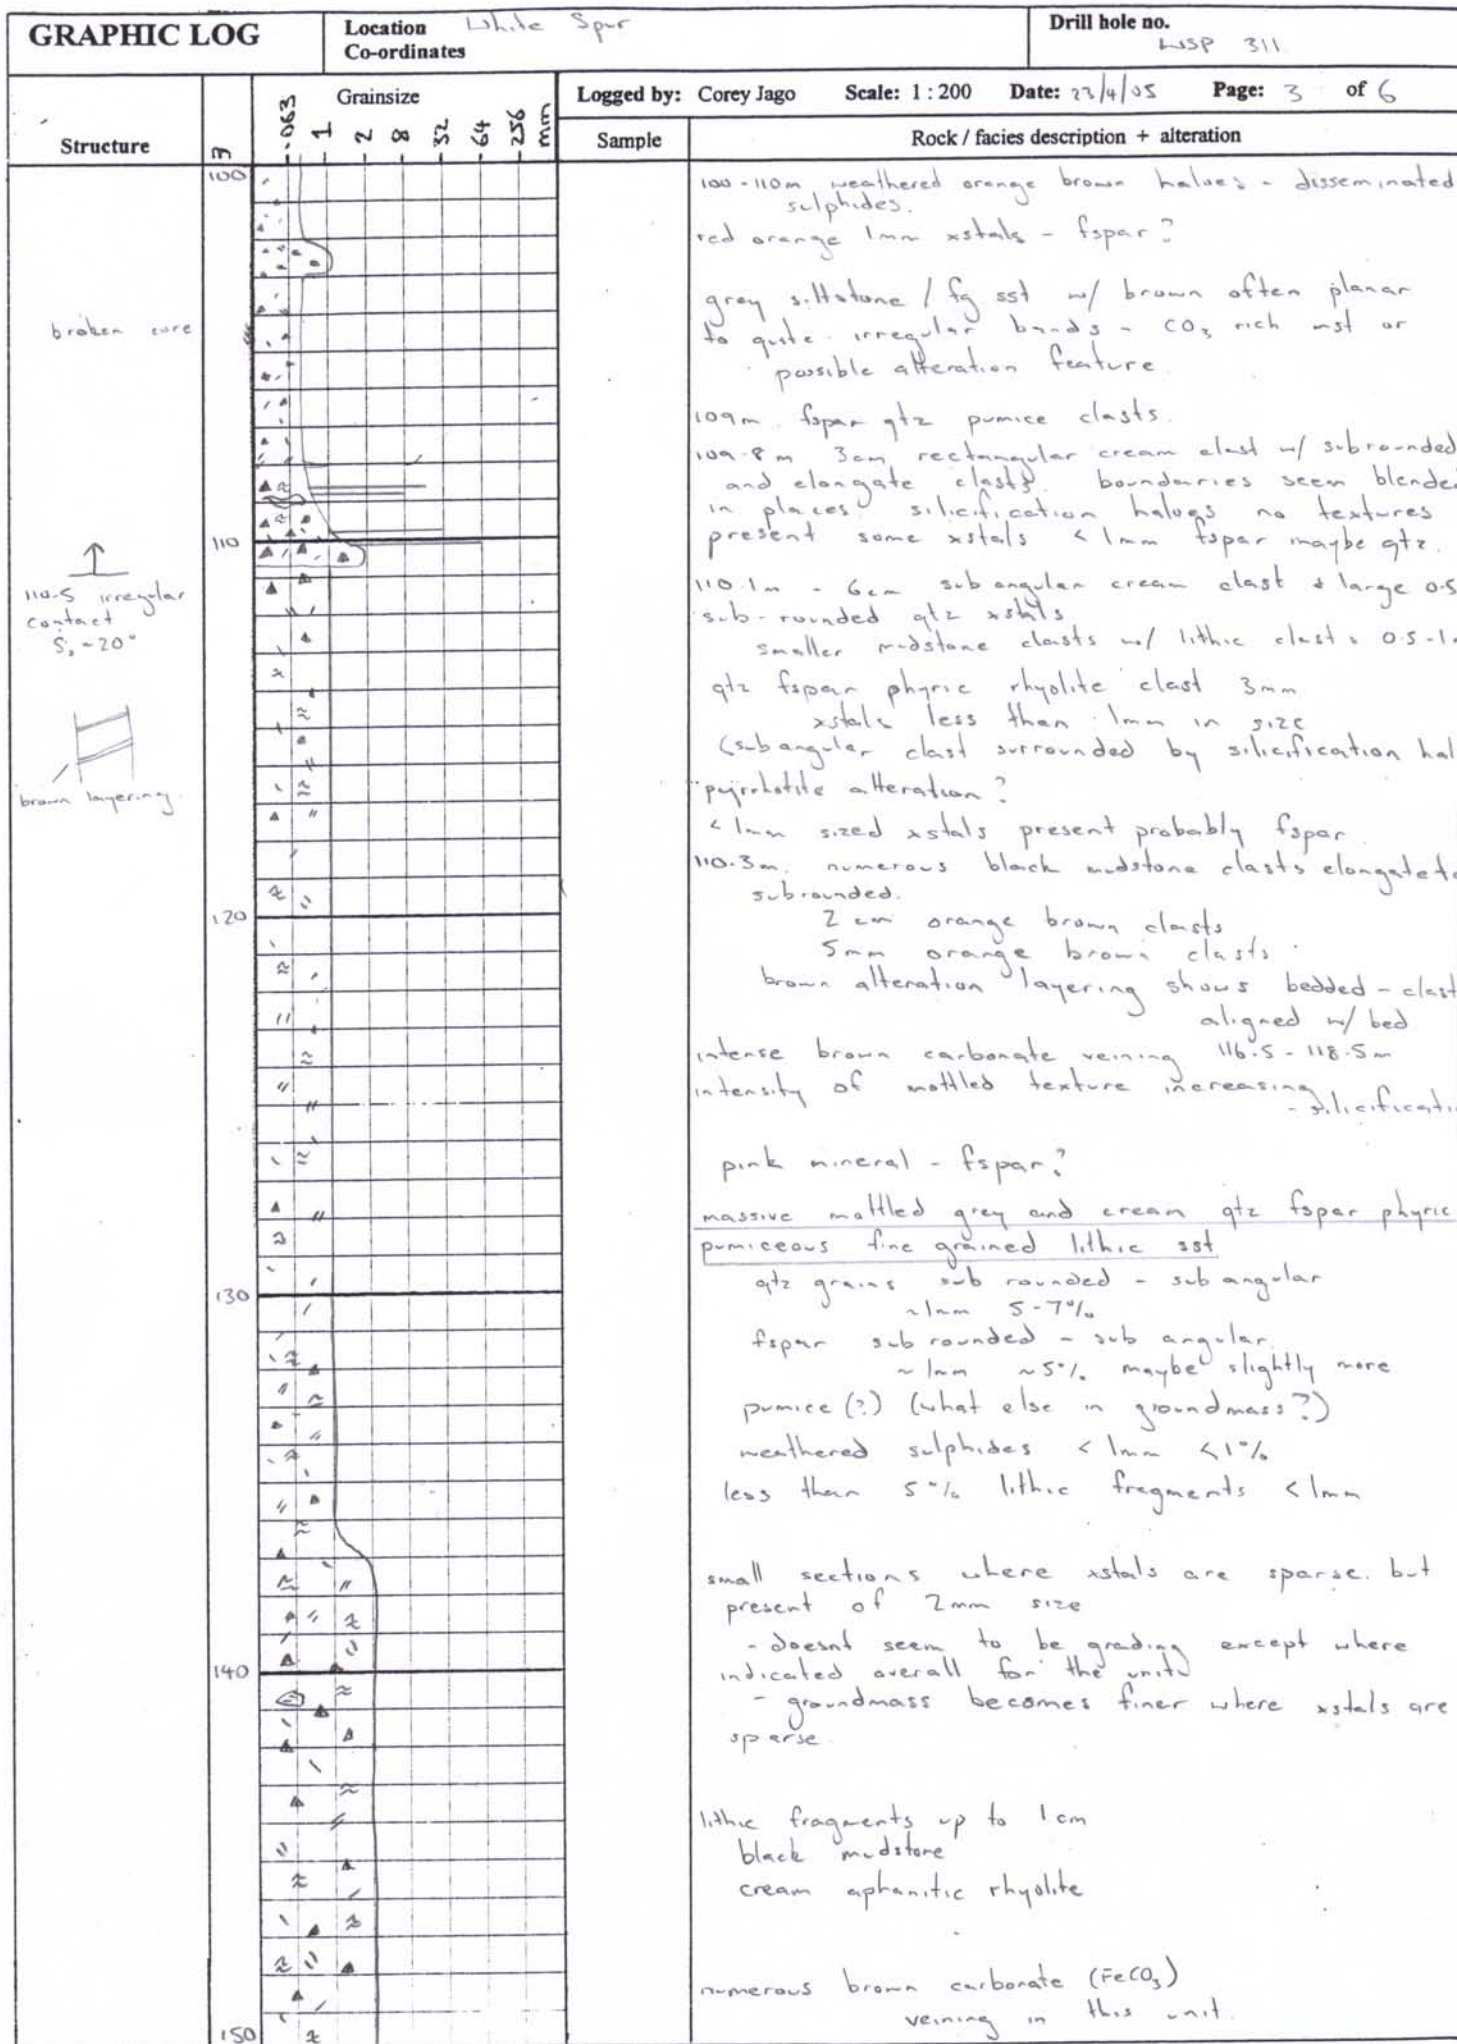 GRAPHIC LOG
Location White Spur
Co-ordinates
Drill hole no.
WSP 311
Logged by: Corey Jago Scale: 1 : 200 Date: 23/4/05 Page: 3 of 6
Structure
m
Grainsize
.063 1 2 8 32 64 256 mm
Sample
Rock / facies description + alteration
100
110
120
130
140
150
broken core
110.5 irregular
contact
~20°
brown layering
100-110m weathered orange brown haloes - disseminated
sulphides.
red orange 1mm xstals - fspar?
grey siltstone / fg sst w/ brown often planar
to quite irregular bands - CO3 rich mst or
possible alteration feature
109m. fspar qtz pumice clasts.
109.8m 3cm rectangular cream clast w/ subrounded
and elongate clasts. boundaries seem blended
in places. silicification haloes no textures
present some xstals < 1mm fspar maybe qtz.
110.1m - 6cm sub angular cream clast & large 0.5
sub-rounded qtz xstals
smaller mudstone clasts w/ lithic clasts 0.5-1
qtz fspar phyric rhyolite clast 3mm
xstals less than 1mm in size
(subangular clast surrounded by silicification hal
pyrrhotite alteration?
< 1mm sized xstals present probably fspar
110.3m, numerous black mudstone clasts elongate
subrounded.
2 cm orange brown clasts
5mm orange brown clasts
brown alteration layering shows bedded - clast
aligned w/ bed
intense brown carbonate veining 116.5-118.5m
intensity of mottled texture increasing
- silicificati
pink mineral - fspar?
massive mottled grey and cream qtz fspar phyric
pumiceous fine grained lithic sst
qtz grains sub rounded - sub angular
~1mm 5-7%
fspar sub rounded - sub angular.
~1mm ~5% maybe slightly more
pumice (?) (what else in groundmass?)
weathered sulphides < 1mm <1%
less than 5% lithic fragments <1mm
small sections where xstals are sparse. but
present of 2mm size
- doesnt seem to be grading except where
indicated overall for the unit
- groundmass becomes finer where xstals are
sparse.
lithic fragments up to 1cm
black mudstone
cream aphanitic rhyolite
numerous brown carbonate (FeCO3)
veining in this unit.